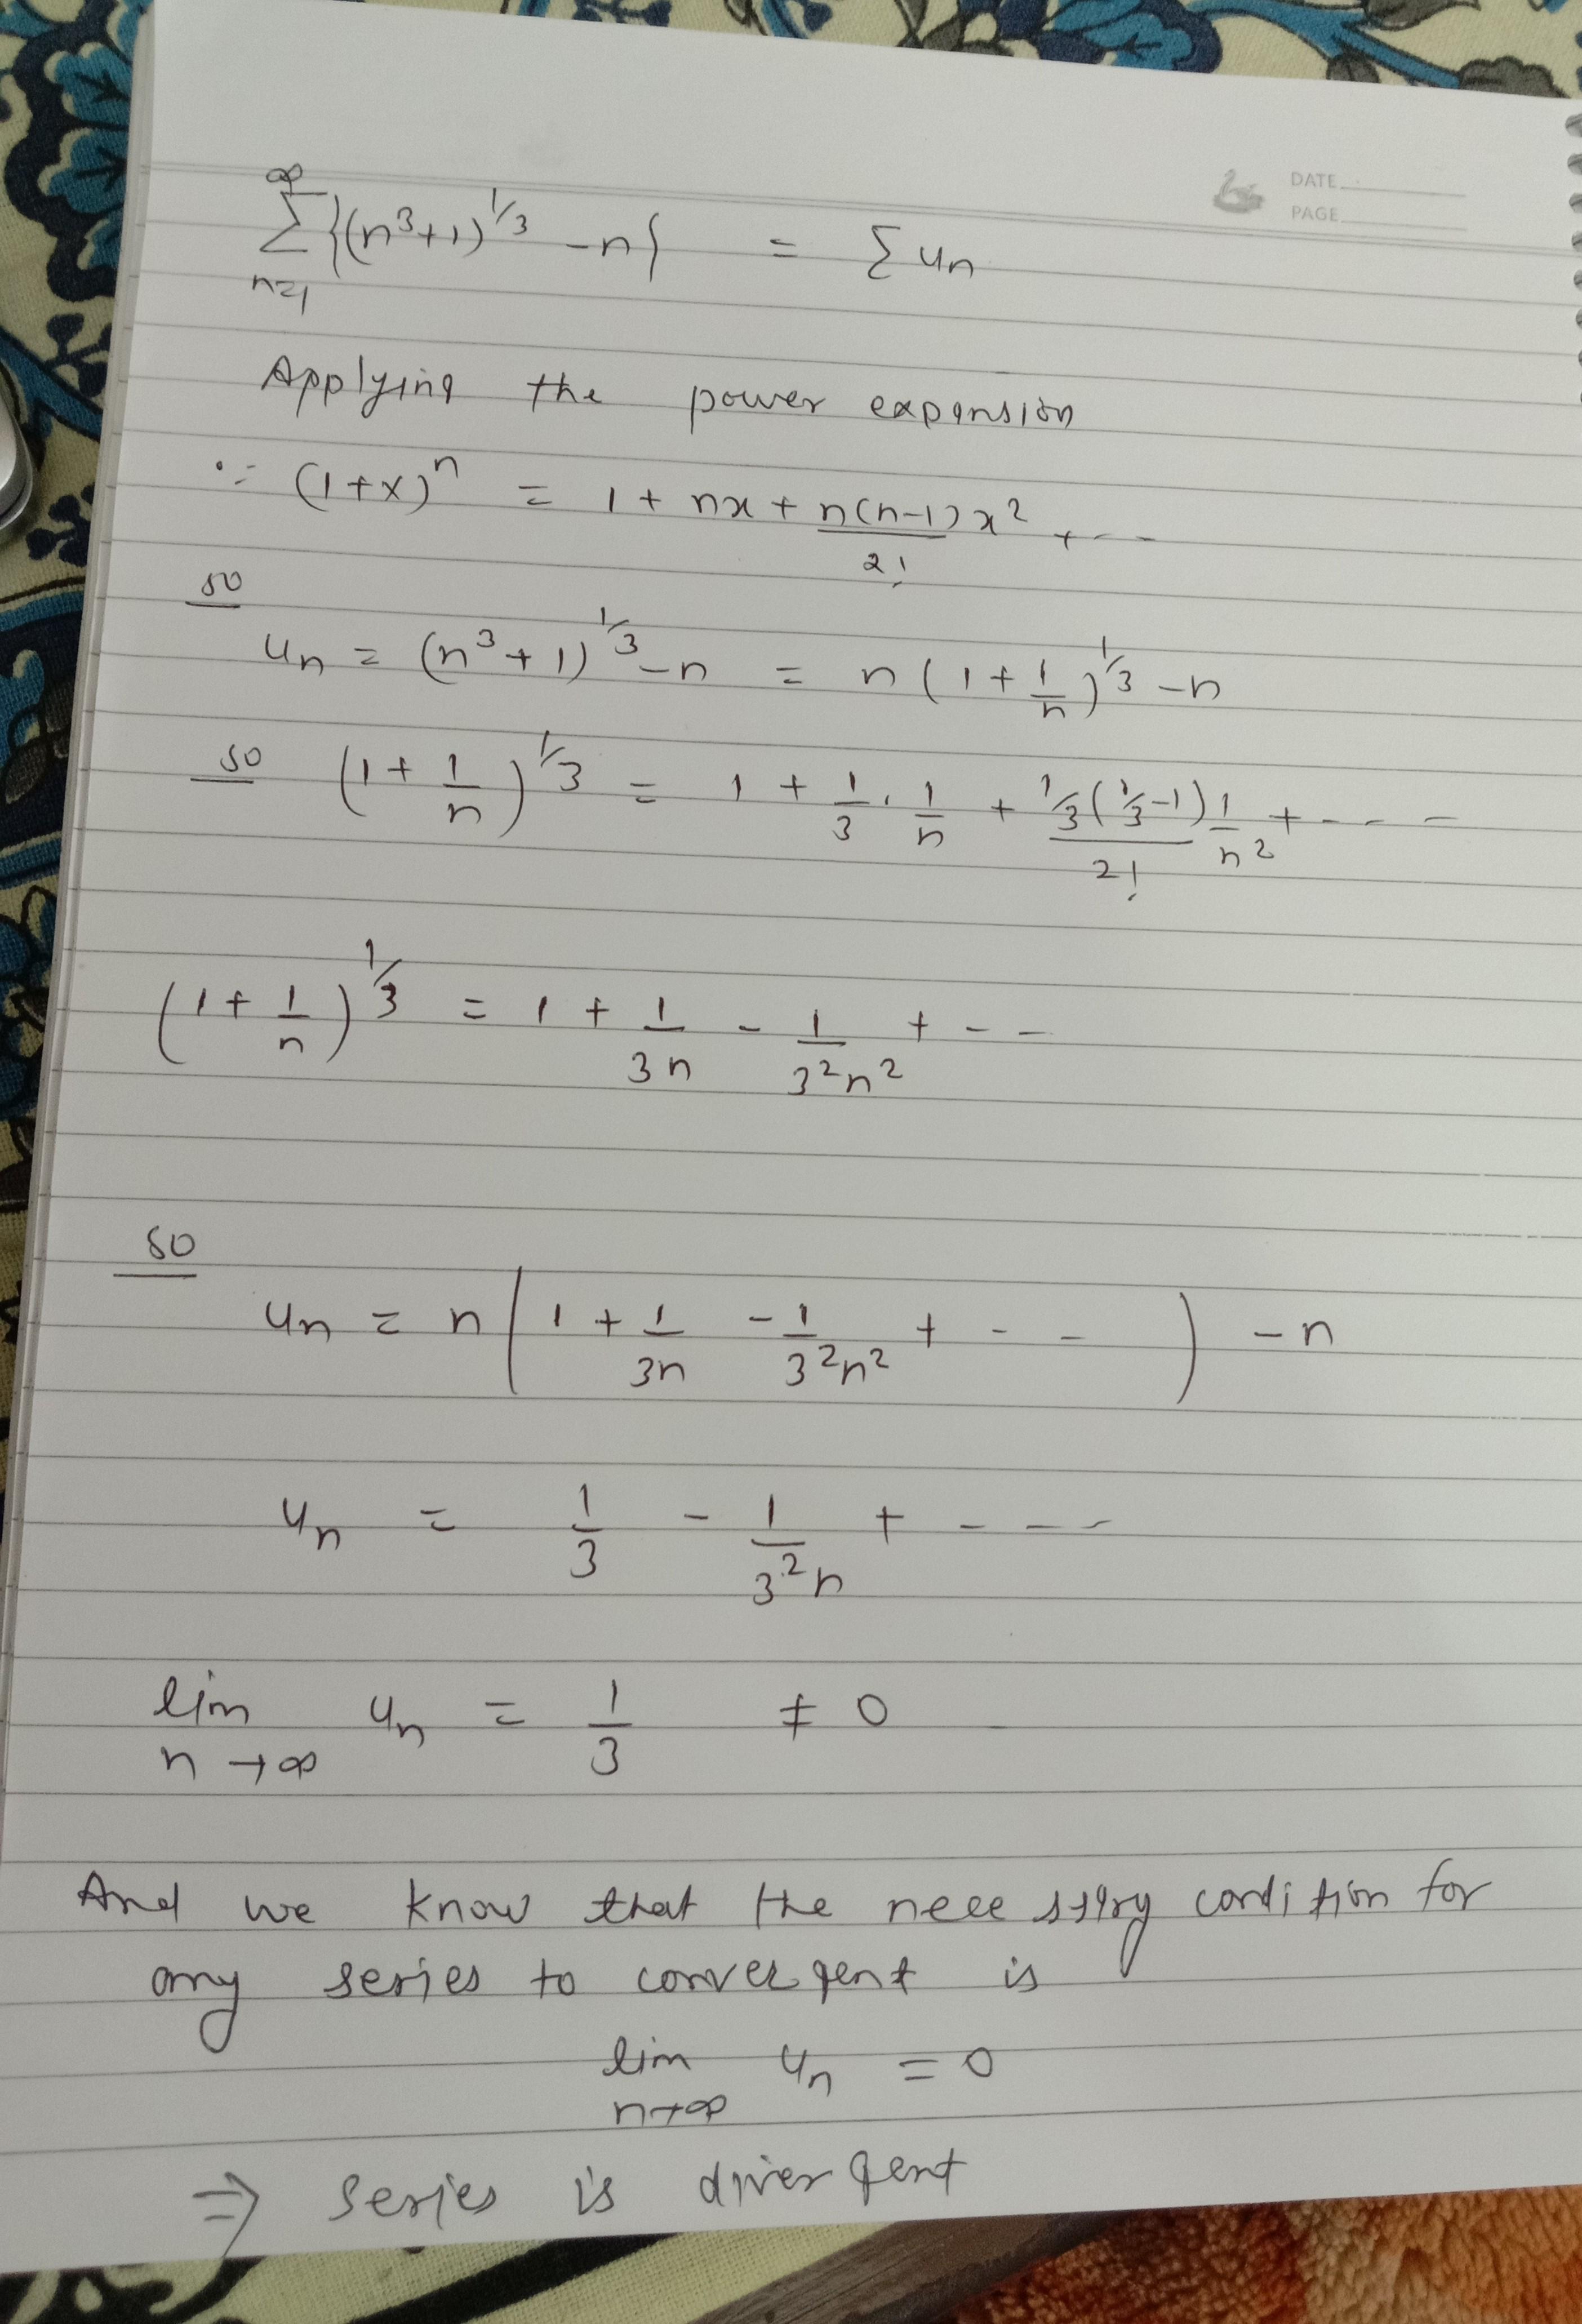 DATE
PAGE
∞
∑ {(n³+1)^1/3 -n} = ∑ un
n=1
Applying the power expansion
∵ (1+x)^n = 1 + nx + n(n-1)/2! x² + - -
so
un = (n³+1)^1/3 -n = n(1+1/n)^1/3 -n
so (1+1/n)^1/3 = 1 + 1/3 · 1/n + 1/3(1/3-1)/2! 1/n² + - - - -
(1+1/n)^1/3 = 1 + 1/3n - 1/3²n² + - -
so
un = n(1 + 1/3n - 1/3²n² + - - ) -n
un = 1/3 - 1/3²n + - - - -
lim n→∞ un = 1/3 ≠ 0
And we know that the necessary condition for
any series to convergent is
lim n→∞ un = 0
⇒ series is divergent